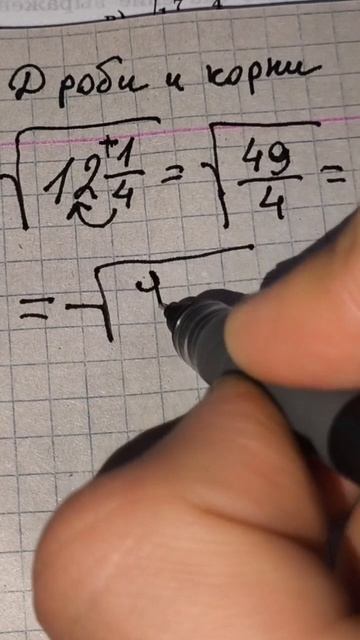 Дроби и корни
√12 +1/4 = √49/4 =
= √4